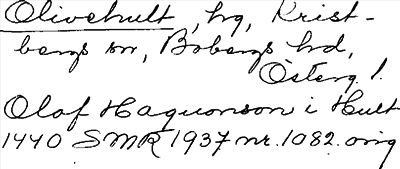 Olivehult, hg, Krist-
bergs sn, Bobergs hd,
Österg. l.
Olof Haquonson i Hult
1440 SMR 1937 nr. 1082. orig